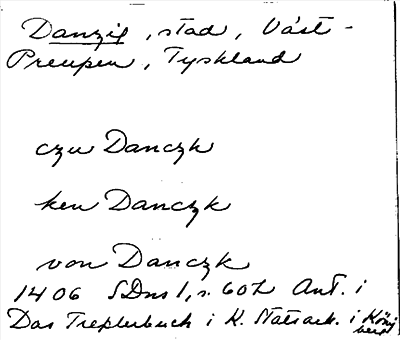 Danzig, stad, Väst-
Preupen, Tyskland
czu Danczk
ken Danczk
von Danczk
1406 SDns 1, s. 602 Ant. i
Das Treplerbuch i K. Statsark. i König
berg